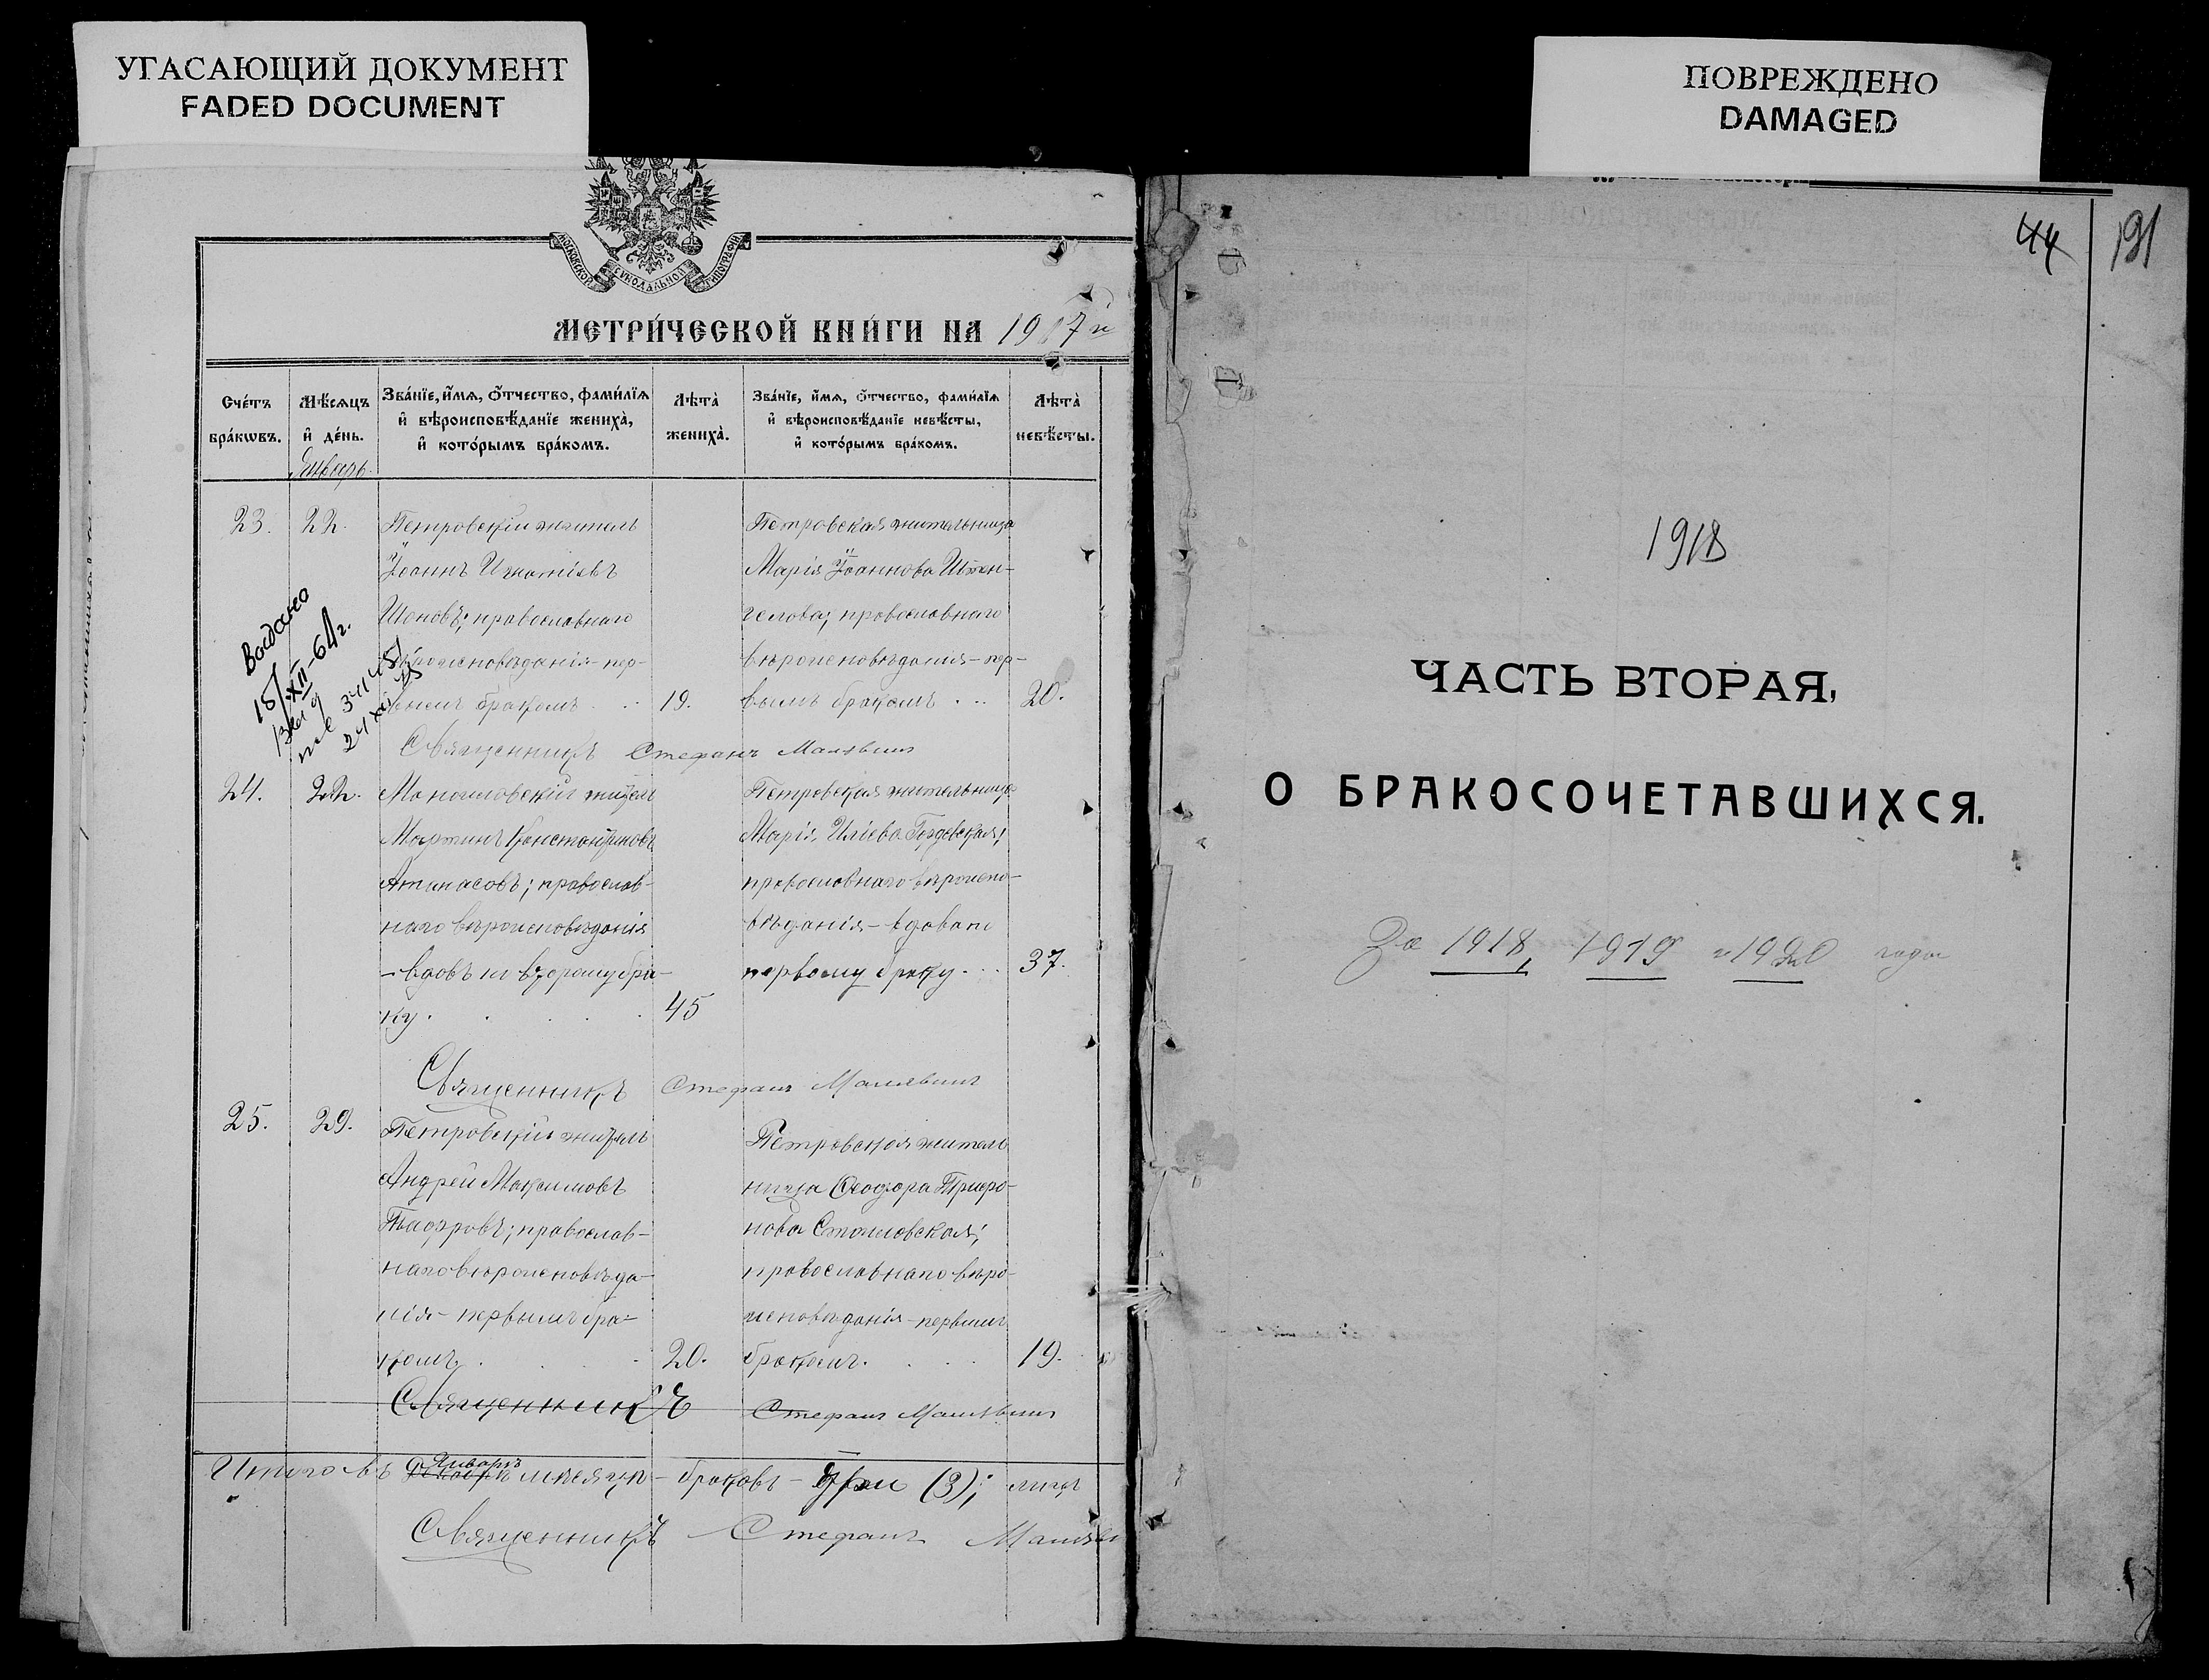 УГАСАЮЩИЙ ДОКУМЕНТ
FADED DOCUMENT
МОСКОВСКОЙ СѴНОДАЛЬНОЙ ТИПОГРАФІИ
МЕТРИ́ЧЕСКОЙ КНИ́ГИ НА 1917 й
Сче́тъ бра́кѡвъ.
Мѣ́сяцъ и҆ де́нь.
Январь.
Зва́нїе, и҆́мѧ, ѻ҆́тчество, фами́лїѧ
и҆ вѣроисповѣ́данїе жениха̀,
и҆ кото́рымъ бра́комъ.
Лѣта̀ жениха̀.
Зва́нїе, и҆́мѧ, ѻ҆́тчество, фами́лїѧ
и҆ вѣроисповѣ́данїе невѣ́сты,
и҆ кото́рымъ бра́комъ.
Лѣта̀ невѣ́сты.
23. 22.
Петровскій житель
Іоаннъ Игнатіевъ
православнаго
вѣроисповѣданія – пер-
вымъ бракомъ 19.
Петровская жительница
Марія Іоаннова
православнаго
вѣроисповѣданія – пер-
вымъ бракомъ 20.
Выдано
18/XII-64г.
Священникъ Стефанъ Малявинъ
24. 22.
житель
Мартинъ Константиновъ
Атанасовъ; православ-
наго вѣроисповѣданія
– вдовъ по второму бра-
ку. 45
Петровская жительница
Марія Иліева
православнаго вѣроиспо-
вѣданія – вдова по
первому браку. 37.
Священникъ Стефанъ Малявинъ
25. 29.
Петровскій житель
Андрей Максимовъ
православ-
наго вѣроисповѣда-
нія – первымъ бра-
комъ. 20.
Петровская житель
ница Ѳеодора Трифо-
нова Стоиловская;
православнаго вѣро-
исповѣданія – первымъ
бракомъ. 19.
Священникъ Стефанъ Малявинъ
Итого въ Январѣ мѣсяцѣ – браковъ – три (3); лицъ
Священникъ Стефанъ
ПОВРЕЖДЕНО
DAMAGED
44 191
1918
ЧАСТЬ ВТОРАЯ,
О БРАКОСОЧЕТАВШИХСЯ.
За 1918, 1919 и 1920 годы